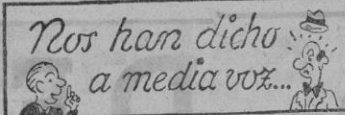 Nos han dicho
a media voz...